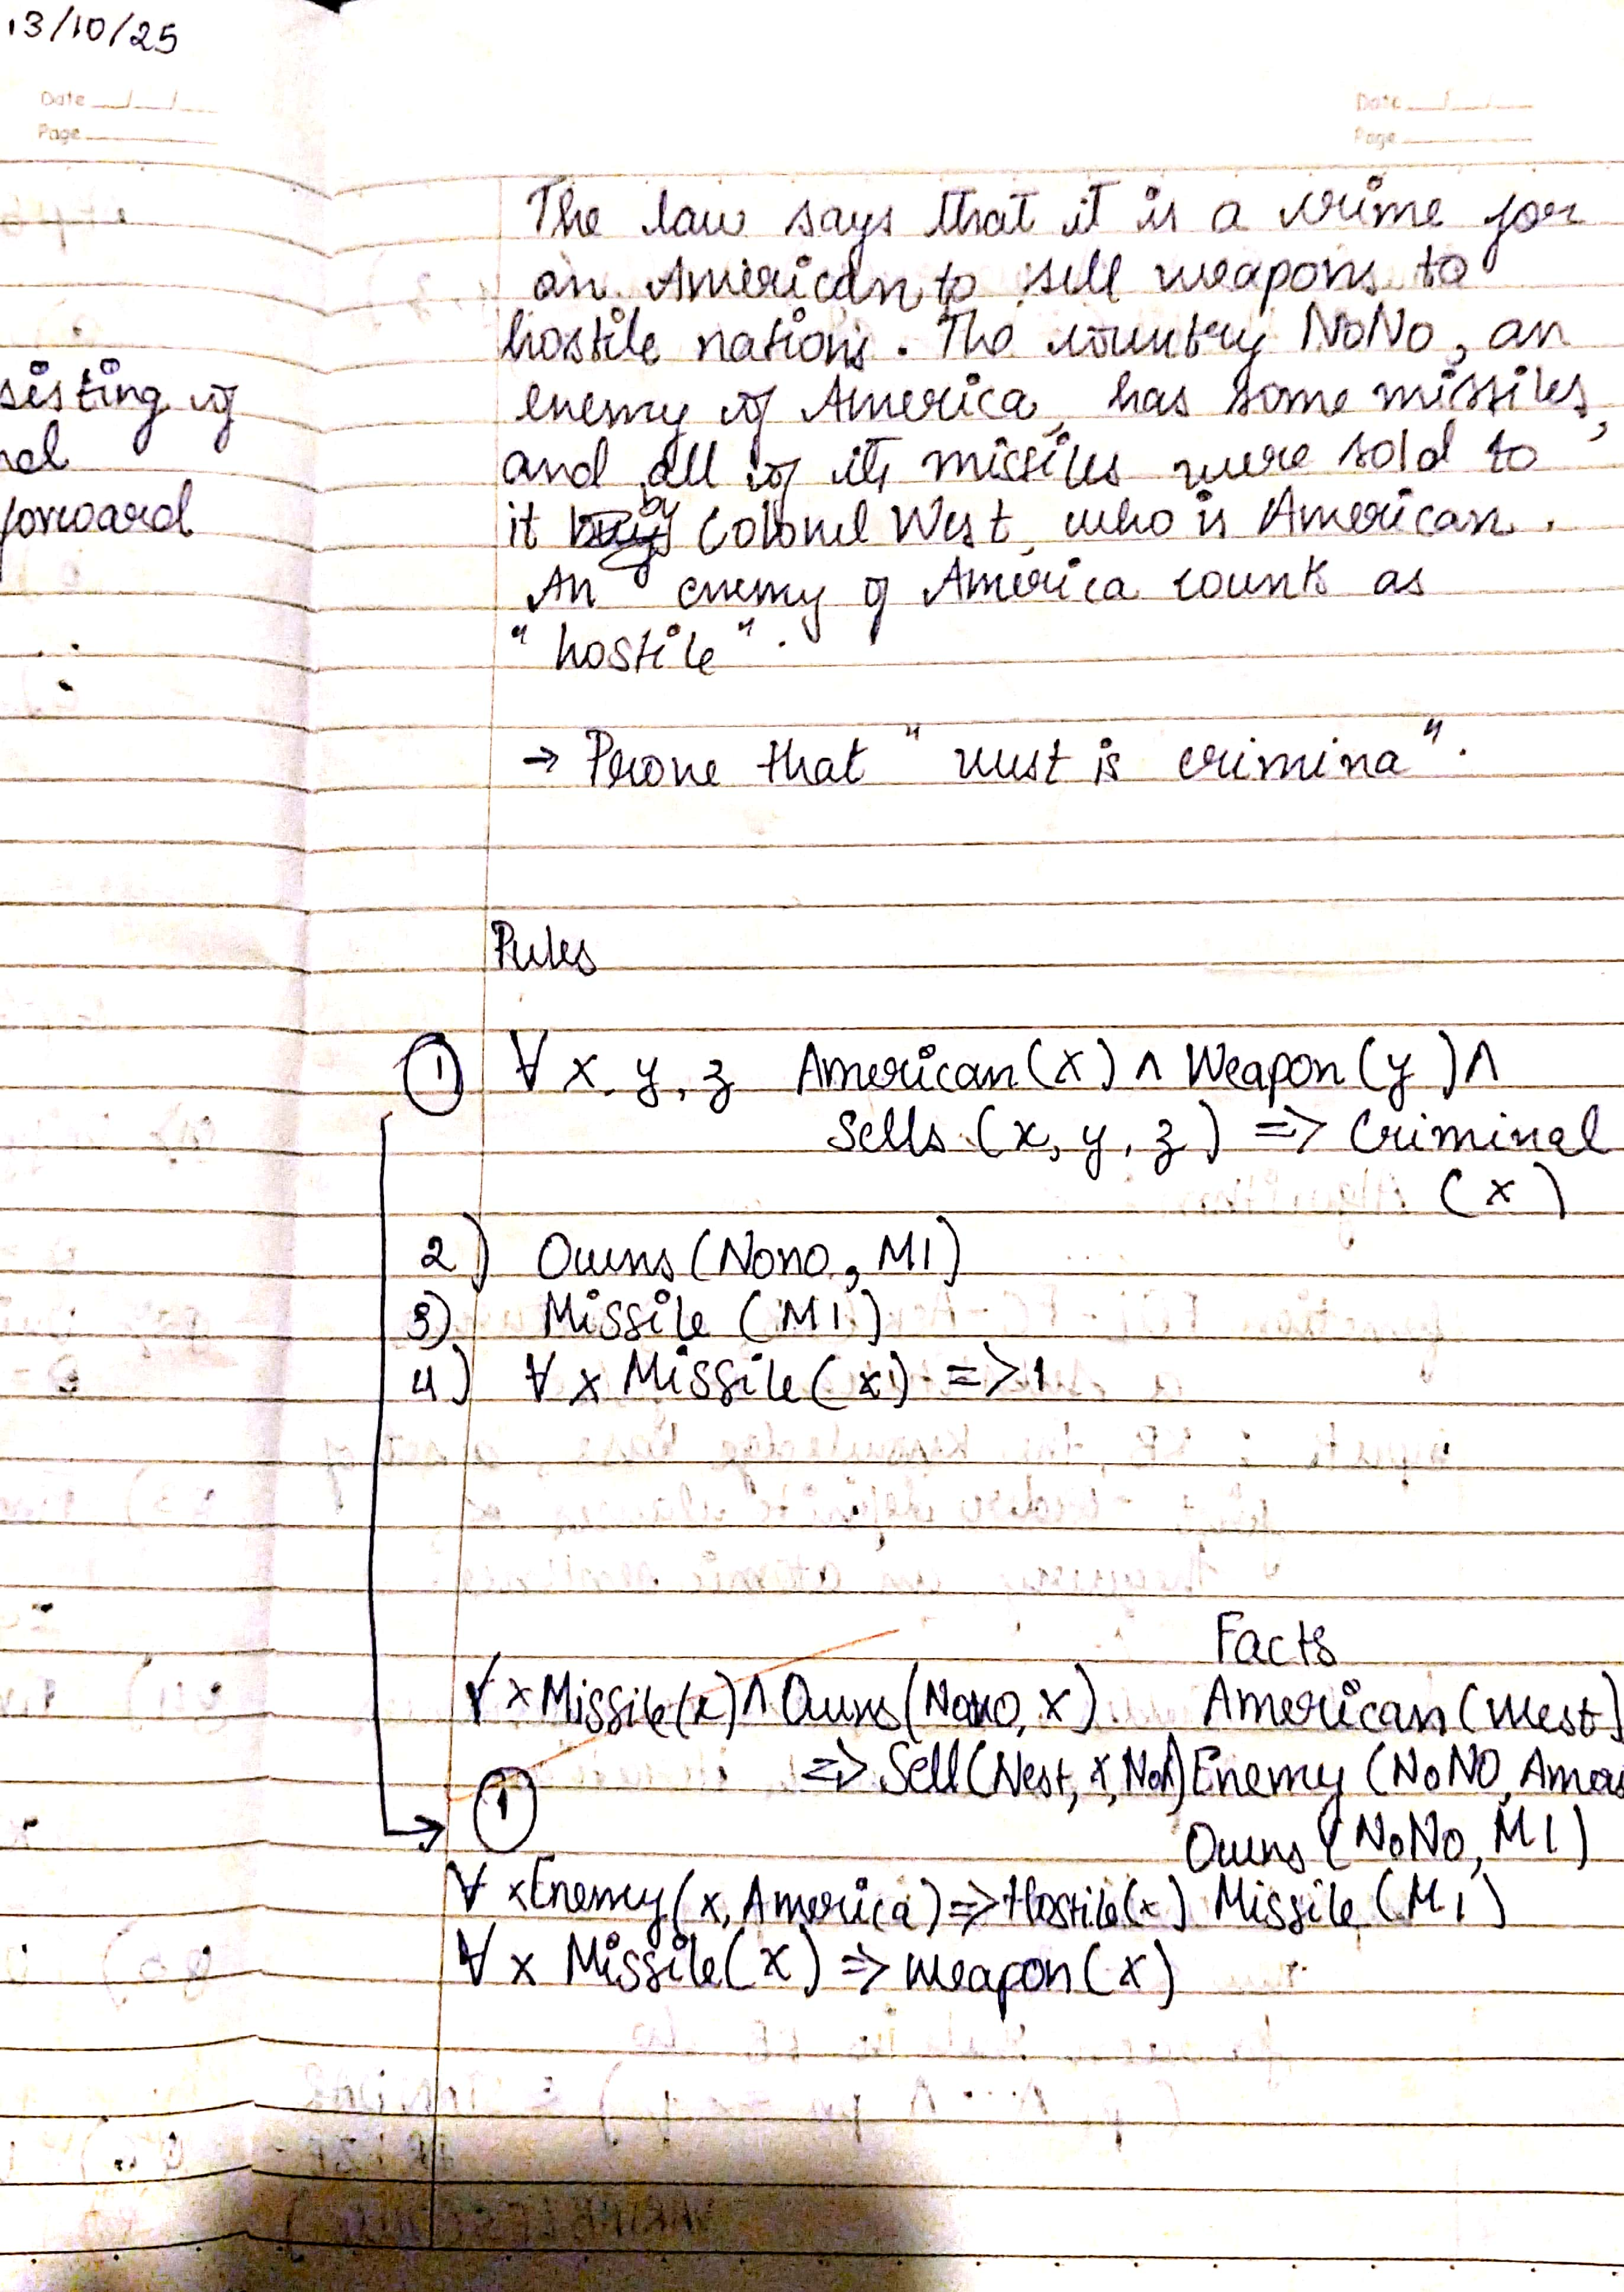 13/10/25
Date
Page
Date
Page
sisting of
forward
The law says that it is a crime for
an American to sell weapons to
hostile nations. The country NoNo, an
enemy of America, has some missiles,
and all of its missiles were sold to
it by Colonel West, who is American.
An enemy of America counts as
"hostile".
→ Prove that "west is crimina".
Rules
① ∀ x, y, z American(x) ∧ Weapon(y) ∧
Sells (x, y, z) => Criminal
(x)
2) Owns (Nono, M1)
3) Missile (M1)
4) ∀ x Missile(x) => 1
Facts
∀ x Missile(x) ∧ Owns(Nono, x) American(West)
=> Sell(Nest, x, Non) Enemy (NoNO, Amer
① Owns (NoNo, M1)
∀ x Enemy(x, America) => Hostile(x) Missile (M1)
∀ x Missile(x) => weapon(x)